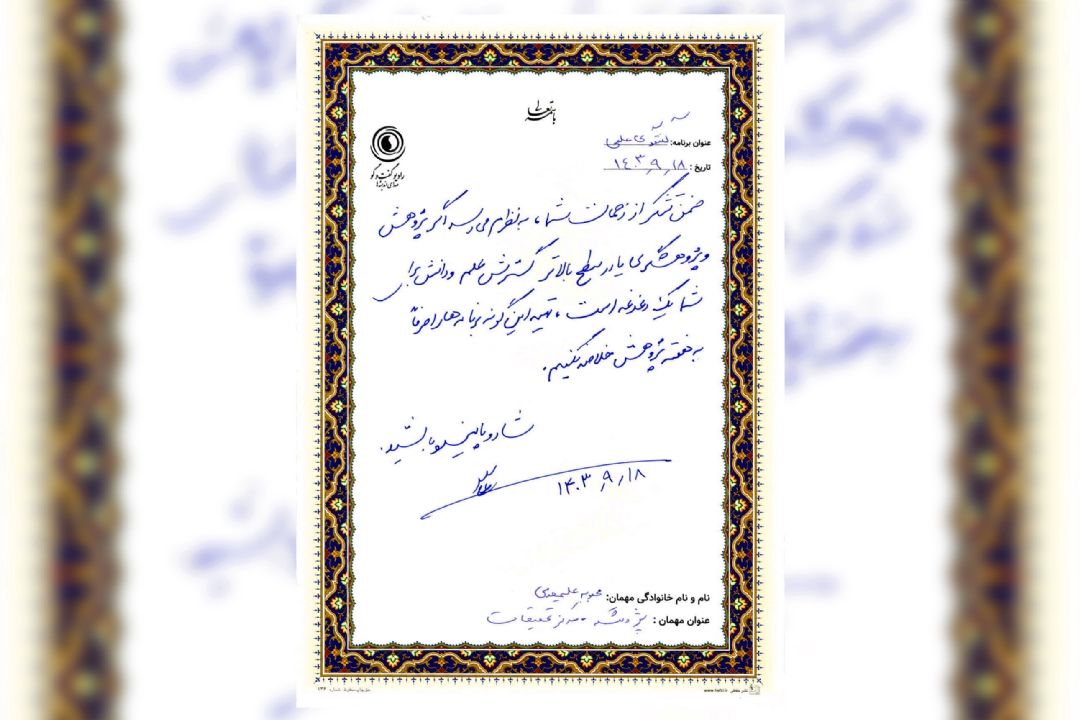 باسمه تعالی
رادیو گفت و گو
صدای اندیشه‌ها
عنوان برنامه: گفتگوی علمی
تاریخ: ۱۴۰۳/۹/۱۸
ضمن تشکر از زحمات شما، به‌نظرم می‌رسد اگر پژوهش
و پژوهشگری یا در سطح بالاتر گسترش علم و دانش برای
شما یک دغدغه است، تهیه این گونه برنامه‌ها را صرفاً
به هفته پژوهش خلاصه نکنیم.
شاد و پاینده باشید.
۱۴۰۳/۹/۱۸
نام و نام خانوادگی مهمان:
عنوان مهمان: مرکز تحقیقات